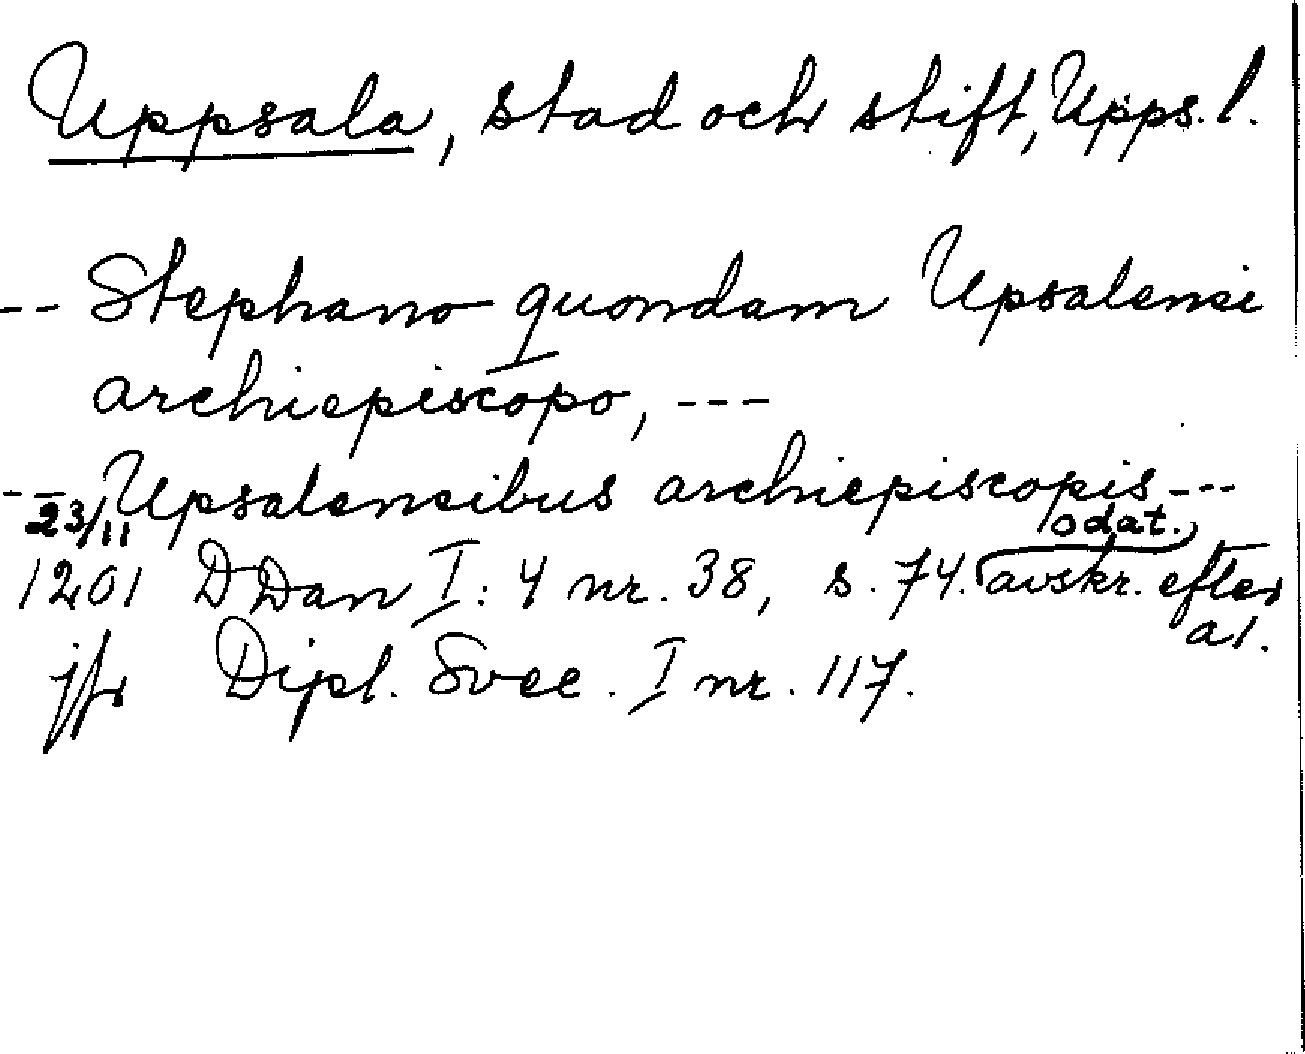 Uppsala, stad och stift, Upps. l.
-- Stephano quondam Upsalensi
archiepiscopo, ---
-- Upsalensibus archiepiscopis ---
23/11 odat.
1201 DDan I: 4 nr. 38, s. 74. avskr. efter
a1.
jfr Dipl. Svec. I nr. 117.